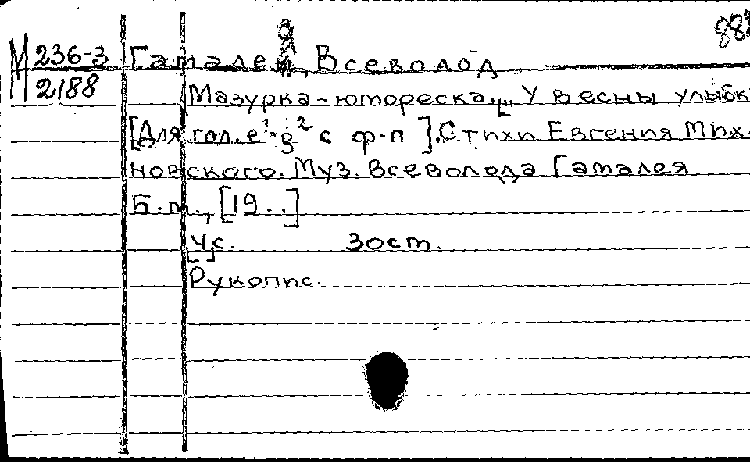 882
М 236-3 Гамалей, Всеволод
2188
Мазурка-юмореска. [У весны улыбк
[Для гол. e¹-g² с ф-п]. Стихи Евгения Мих-
новского. Муз. Всеволода Гамалея
Б.м., [19..]
[4]с. 30ст.
Рукопис.